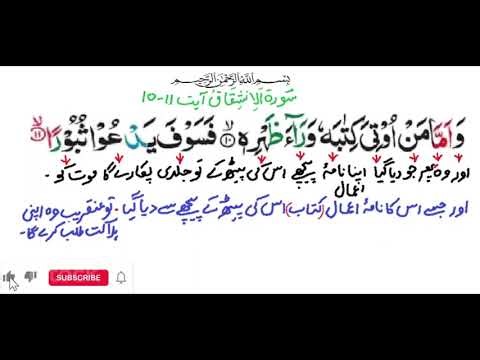 بسم الله الرحمن الرحيم
سورة الانشقاق آیت ۱۱-۱۰
وَ اَمَّا مَنْ اُوْتِیَ كِتٰبَهٗ وَرَآءَ ظَهْرِهٖ ۙ۱۰ فَسَوْفَ یَدْعُوْا ثُبُوْرًا ۙ۱۱
اور وہ پھر جو دیا گیا اپنا نامۂ پیچھے اس کی پیٹھ کے تو جلدی پکارے گا موت کو -
اعمال
اور جسے اس کا نامۂ اعمال (کتاب) اس کی پیٹھ کے پیچھے سے دیا گیا - تو عنقریب وہ اپنی
ہلاکت طلب کرے گا -
SUBSCRIBE